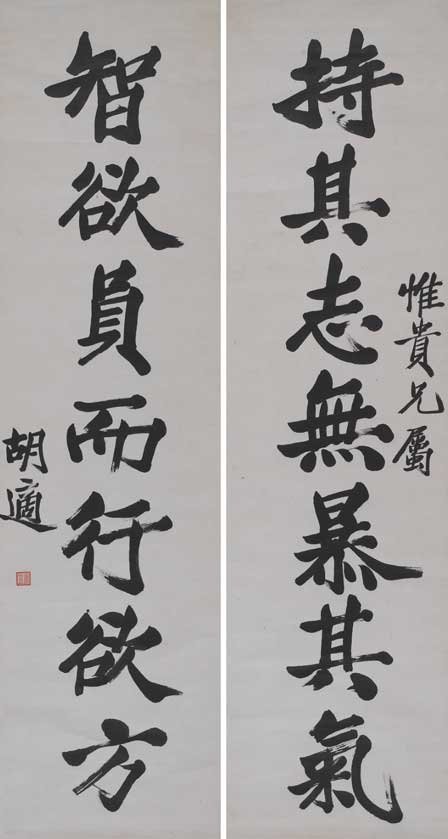 惟貴兄屬
持其志無暴其氣
智欲員而行欲方
胡適